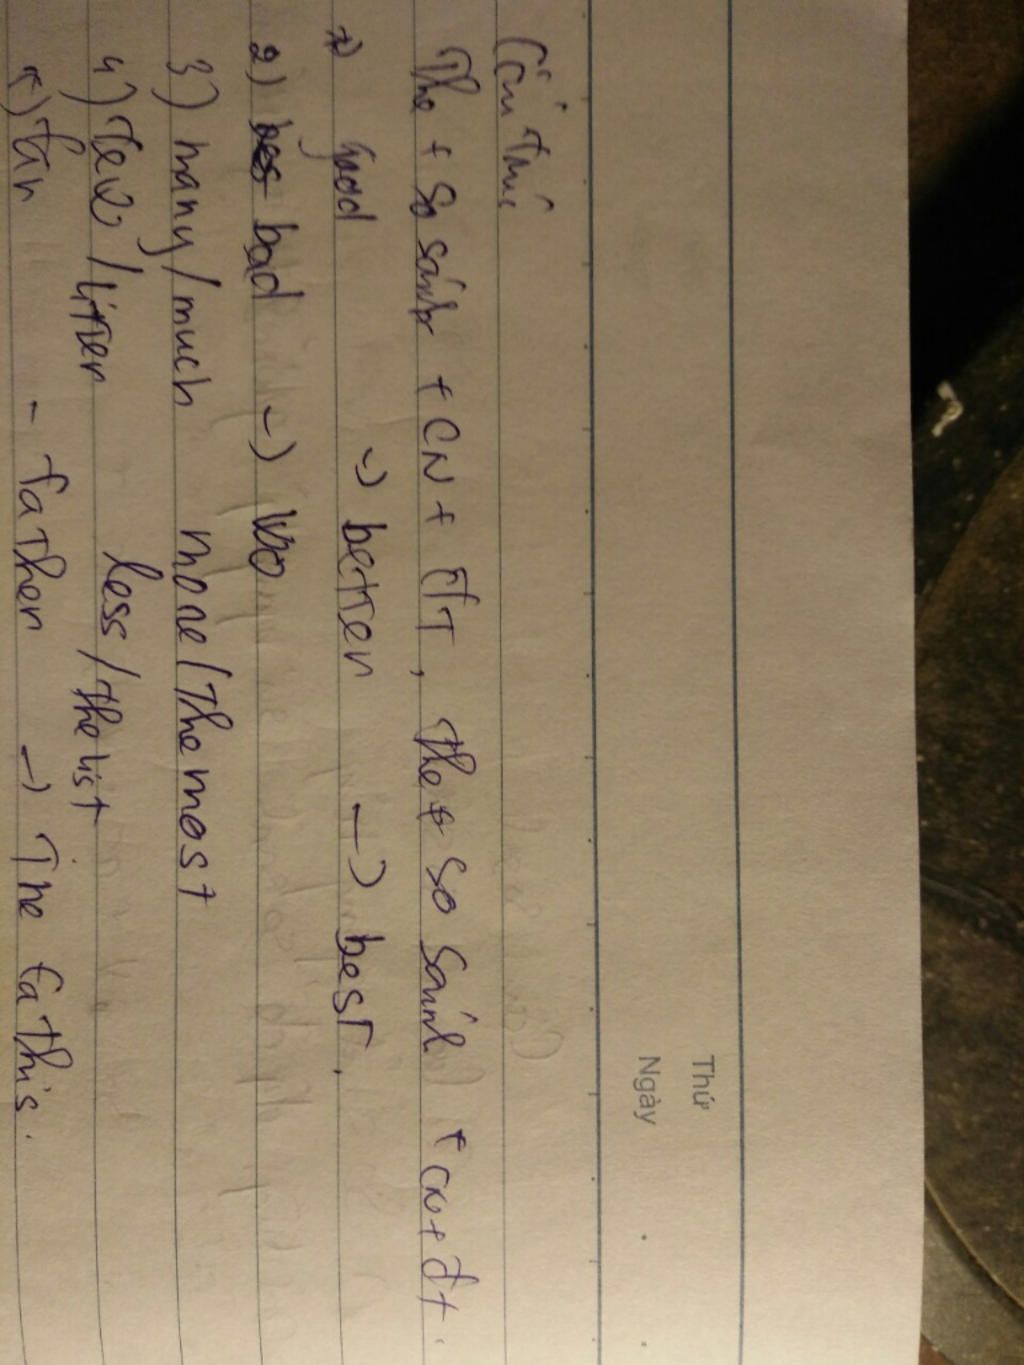 Thứ
Ngày
The + so sánh + CN + ĐT, the + so sánh + CN + đt.
1) good -> better -> best.
2) bad ->
3) many/much more/the most
4) few/litter less/the list
5) far - father -> The fathis.